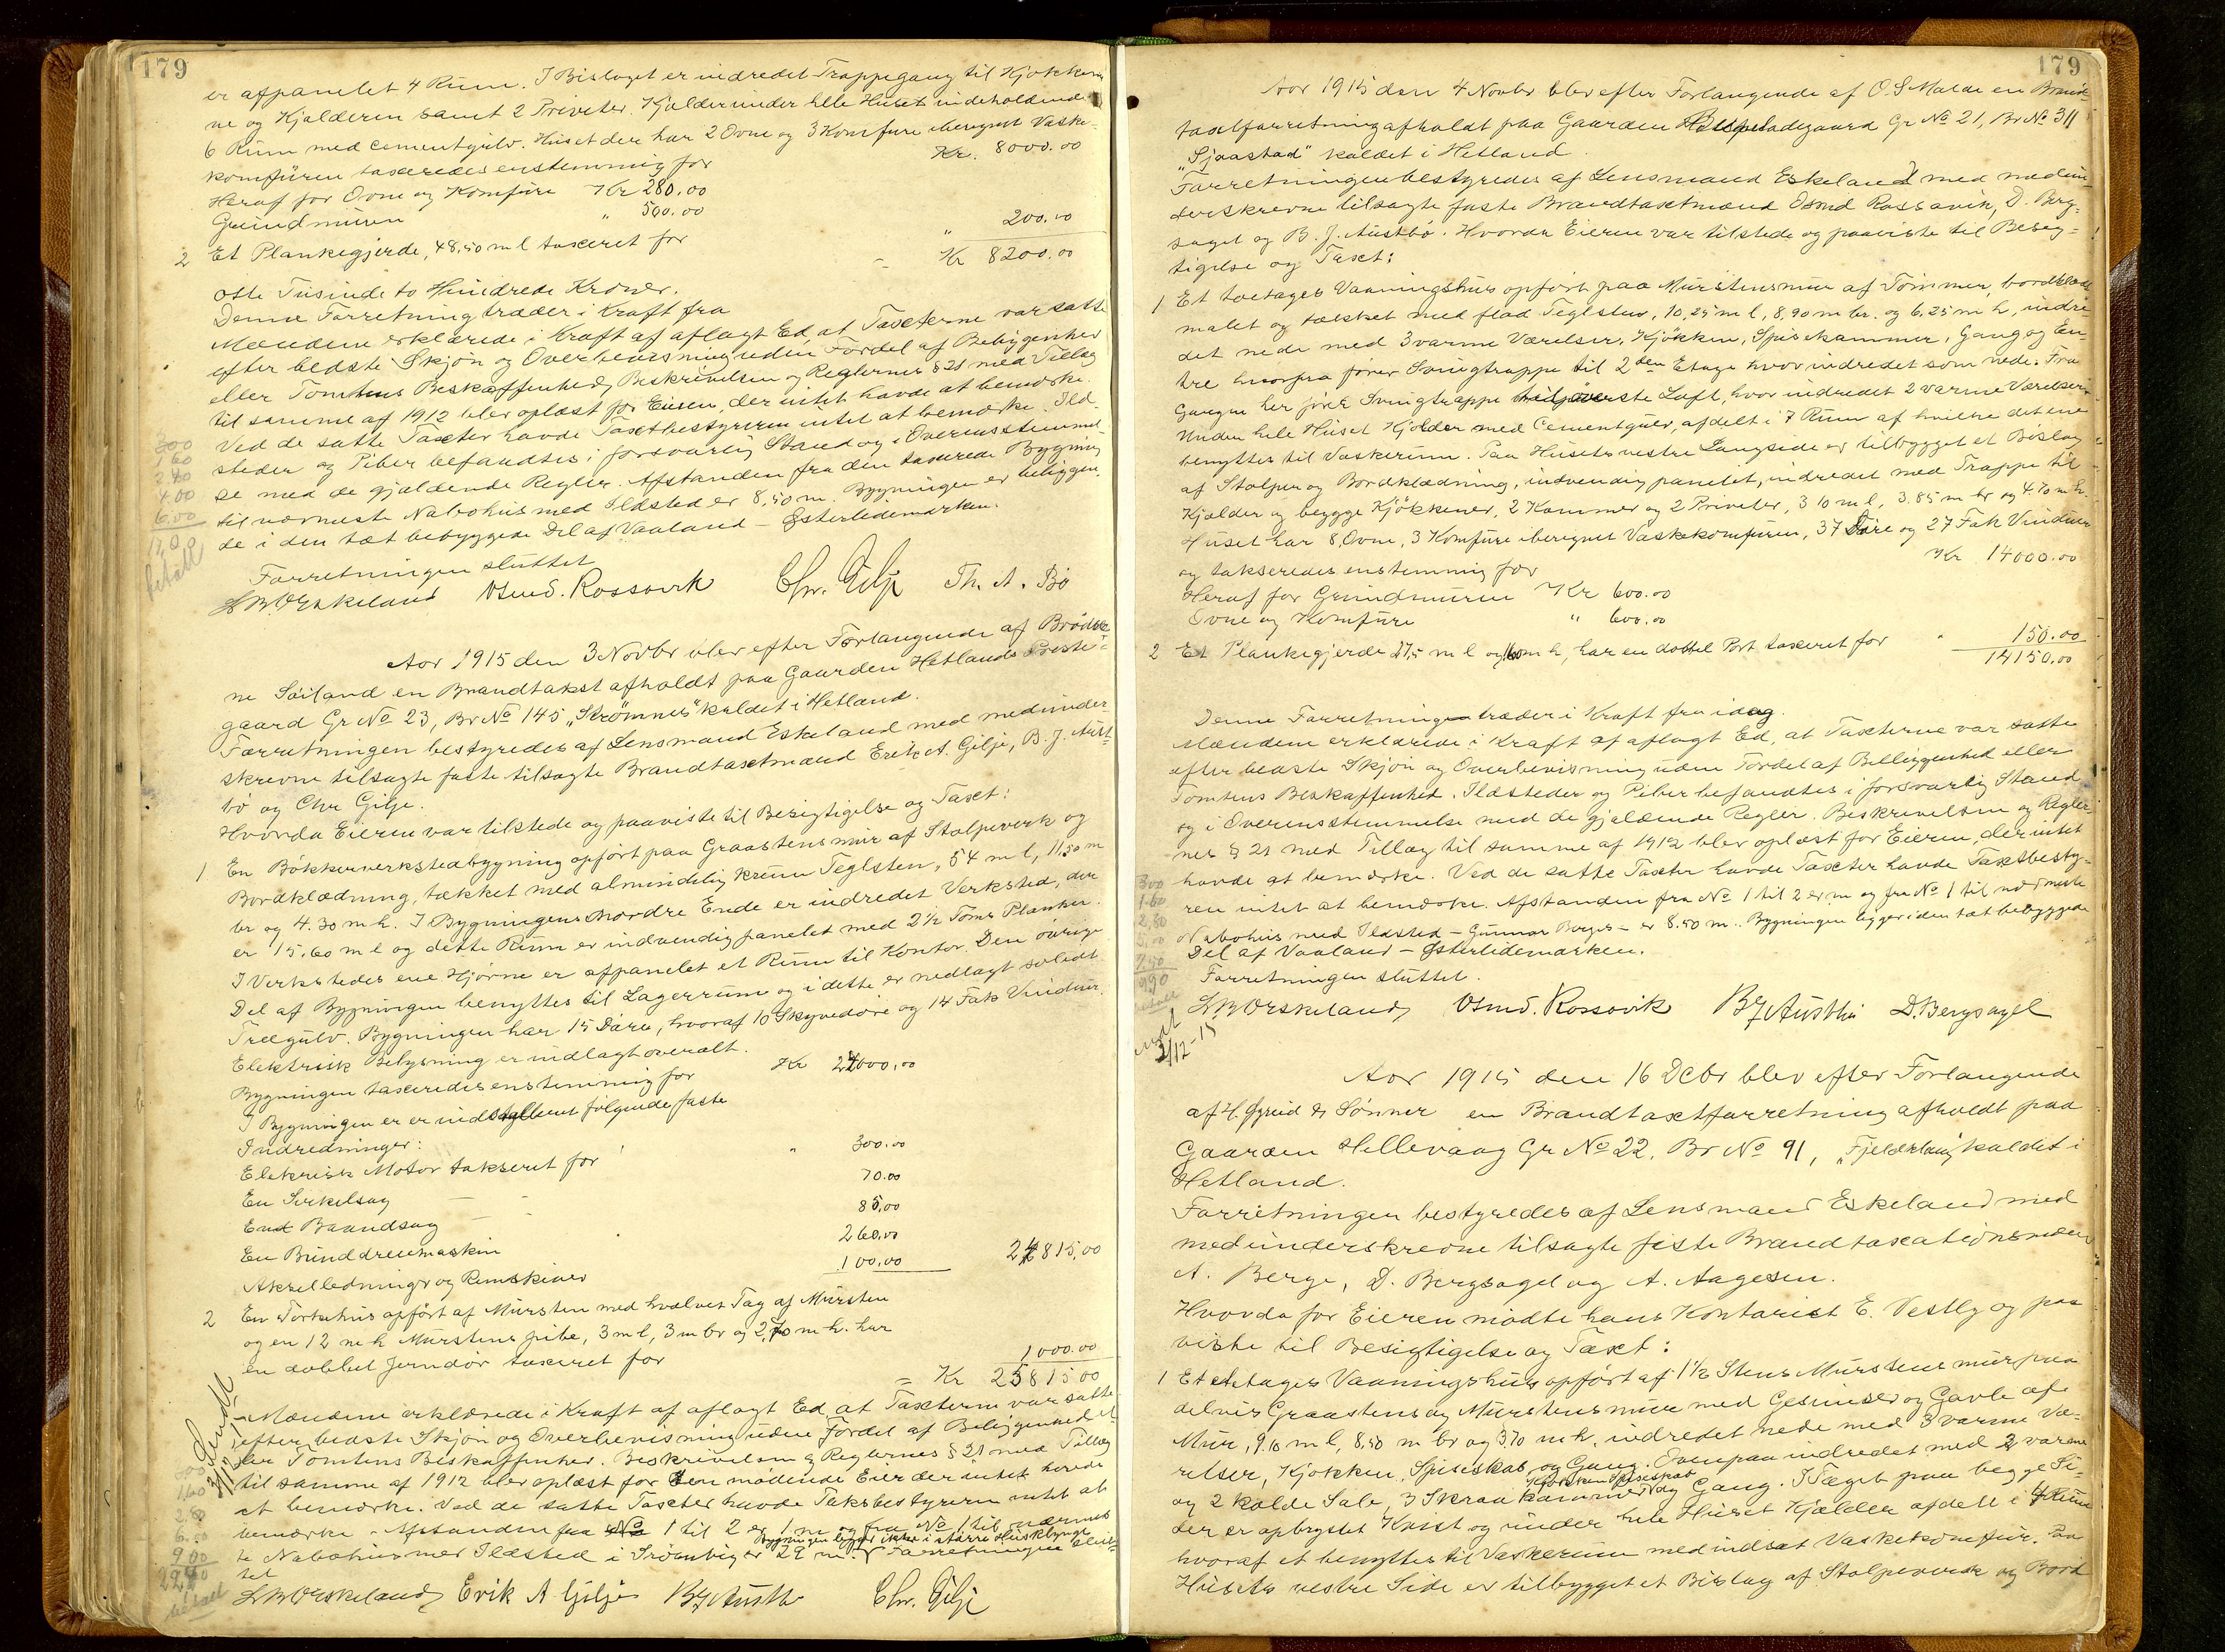 179
er afpanelet 4 Rum. I Bislaget er indredet Trappegang til Kjøkkene
ne og Kjælderen samt 2 Priveter. Kjælder under hele Huset indeholdende
6 Rum med Cementgulv. Huset der har 2 Ovne og 3 Komfure iberegnet Vaske-
komfuren taxeredes enstemmig for Kr. 8000.00
Heraf for Ovne og Komfure Kr 280.00
Grundmuren " 500.00
2 Et Plankegjerde, 48,50 m l taxeret for " 200.00
= Kr 8200.00
otte Tusinde to Hundrede Kroner.
Denne Forretning træder i Kraft fra
Mændene erklærede i Kraft af aflagt Ed, at Taxterne var satte
efter bedste Skjøn og Overbevisning uden Fordel af Bebyggenhed
eller Tomtens Beskaffenhed, Beskrivelsen og Reglernes § 21 med Tillæg
til samme af 1912 blev oplæst for Eieren, der intet havde at bemærke.
Ved de satte Taxter havde Taxtbestyreren intet at bemærke. Ild-
steder og Piber befandtes i forsvarlig Stand og i Overensstemmel-
se med de gjældende Regler. Afstanden fra den taxerede Bygning
til nærmeste Nabohus med Ildsted er 8,50 m. Bygningen er beliggen-
de i den tæt bebyggede Del af Vaaland - Østerlidemarken.
Forretningen sluttet
Osmd. Rossavik Chr. Gilje Th. A. Bø
300
1.60
2.40
4.00
6.00
17,00
betalt
Aar 1915 den 3 Novbr blev efter Forlangende af Brødre-
ne Søiland en Brandtakst afholdt paa Gaarden Hetlands Preste-
gaard Gr No 23, Br No 145 „Strømnes" kaldet i Hetland.
Forretningen bestyredes af Lensmand Eskeland med medunder-
skrevne tilsagte faste tilsagte Brandtaxtmænd Erik A. Gilje, B. J. Aust-
bø og Chr Gilje.
Hvorda Eieren var tilstede og paaviste til Besigtigelse og Taxt:
1 En Bøkkerverkstedbygning opført paa Graastensmur af Stolpeverk og
Bordklædning, tækket med almindelig krum Teglsten, 54 m l, 11,50 m
br og 4.30 m h. I Bygningens Nordre Ende er indredet Verksted, der
er 15.60 m l og dette Rum er indvendig panelet med 2½ Toms Planker.
I Verkstedes ene Hjørne er afpanelet et Rum til Kontor. Den øvrige
Del af Bygningen benyttes til Lagerrum og i dette er nedlagt solidt
Trægulv. Bygningen har 15 Døre, hvoraf 10 Skyvedøre og 14 Fak Vinduer.
Elektrisk Belysning er indlagt overalt.
Bygningen taxeredes enstemmig for Kr 24000.00
I Bygningen er er indstalleret følgende faste
Indredninger:
Elekrisk Motor takseret for " 300.00
En Sirkelsag 70.00
End Baandsag 85.00
En Bunddreiemaskin 260.00
Akselledninger og Remskiver 100.00 24815.00
2 En Tørkehus opført af Mursten med hvælvet Tag af Mursten
og en 12 m h Murstens pibe, 3 m l, 3 m br og 2,70 m h. har
en dobbel Jerndør taxeret for 1000.00
= Kr 25815.00
Mændene erklærede i Kraft af aflagt Ed at Taxterne var satte
efter bedste Skjøn og Overbevisning uden Fordel af Beliggenhed el-
ler Tomtens Beskaffenhed. Beskrivelsen og Reglernes § 21 med Tillæg
til samme af 1912 blev oplæst for den mødende Eier der intet havde
at bemærke. Ved de satte Taxter havde Taksbestyreren intet at
bemærke - Afstanden fra No 1 til 2 er 1 m og fra No 1 til nærmes
Bygningen ligger ikke i større Husklynge
te Nabohus med Ildsted i Strømvig er 29 m. Forretningen slut-
tet
Erik A Gilje BJ Austbø Chr. Gilje
Sendt
1.60
6.50
9.00
betalt
179
Aar 1915 den 4 Novbr blev efter Forlangende af O. S Malde en Brand-
taxtforretning afholdt paa Gaarden Bispeladegaard Gr No 21, Br No 311
„Sjaastad" kaldet i Hetland.
Forretningen bestyredes af Lensmand Eskeland med medun-
derskrevne tilsagte faste Brandtaxtmænd Osmd Rossavik, D. Berg-
saget og B. J. Austbø. Hvorda Eieren var tilstede og paaviste til Besig-
tigelse og Taxt:
1 Et toetages Vaaningshus opført paa Murstensmur af Tømmer, bordklædt
malet og tækket med flad Teglsten, 10,25 m l, 8,90 m br. og 6,25 m h, indre-
det nede med 3 varme Værelser, Kjøkken, Spisekammer, Gang og En-
tre hvorfra fører Svingtrappe til 2den Etage hvor indredet som nede. Fra
Gangen her fører Svingtrappe til øverste Loft, hvor indredet 2 varme Værelser.
Under hele Huset Kjelder med Cementgulv, afdelt i 7 Rum af hvilke det ene
benyttes til Vaskerum. Paa Husets vestre Langside er tilbygget et Bislag
af Stolper og Bordklædning, indvendig panelet, indredet med Trappe til
Kjælder og begge Kjøkkener, 2 Kammer og 2 Priveter, 3 10 m l, 3,85 m br og 4.70 m h.
Huset har 8 Ovne, 3 Komfure iberegnet Vaskekomfuren, 37 Døre og 27 Fak Vinduer
og takseredes enstemmig for Kr 14000.00
Heraf for Grundmuren Kr 600.00
Ovne og Komfure " 600.00
2 Et Plankegjerde 27,5 m l og 1,60 m h, har en dobbel Port taxeret for " 150.00
14150.00
Denne Forretningen træder i Kraft fra idag.
Mændene erklærede i Kraft af aflagt Ed, at Taxterne var satte
efter bedste Skjøn og Overbevisning uden Fordel af Beliggenhed eller
Tomtens Beskaffenhed. Ildsteder og Piber befandtes i forsvarlig Stand
og i Overensstemmelse med de gjældende Regler. Beskrivelsen og Regler-
nes § 21 med Tillæg til samme af 1912 blev oplæst for Eieren, der intet
havde at bemærke. Ved de satte Taxter havde Taxter havde Taxtbesty-
ren intet at bemærke. Afstanden fra No 1 til 2 er m og fra No 1 til nærmeste
Nabohus med Ildsted - Gunnar Borges - er 8.50 m. Bygningen ligger i den tæt bebyggede
Del af Vaaland - Østerlidemarken.
Forretningen sluttet.
Osmd. Rossavik BJ Austbø D. Bergsagel
3/12-15
Aar 1915 den 16 Dcbr blev efter Forlangende
af H. Øgreid & Sønner en Brandtaxtforretning afholdt paa
Gaarden Hillevaag Gr No 22, Br No 91, „Fjeldtun" kaldet i
Hetland.
Forretningen bestyredes af Lensmand Eskeland med
medunderskrevne tilsagte faste Brandtaxationsmænd
A. Berge, D. Bergsagel og A. Aagesen.
Hvorda for Eieren mødte hans Kontorist E. Vestly og paa
viste til Besigtigelse og Taxt:
1 Et etetages Vaaningshus opført af 1½ Stens Murstens mur paa
delvis Graastens og Murstensmur med Gesimser og Gavle af
Mur, 9.10 m l, 8,50 m br og 3.70 m h. indredet nede med 3 varme Væ-
relser, Kjøkken, Spiseskab og Gang. Ovenpaa indredet med 2 varme
Kjøkken Spiseskab
og 2 kolde Sale, 3 Skraakammer og Gang. I Taget paa begge Si-
der er opbygget Kvist og under hele Huset Kjælder afdelt i 4 Rum
hvoraf et benyttes til Vaskerum med indsat Vaskekomfur. Paa
Husets vestre Side er tilbygget et Bislag af Stolpeverk og Bord